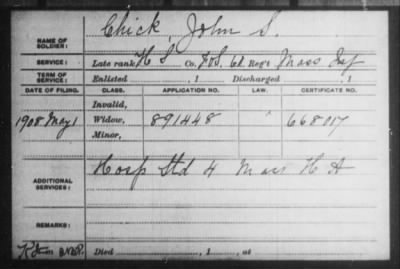 Chick, John S.
NAME OF SOLDIER:
SERVICE: Late rank, H S Co. F&S, 62 Reg't Mass Inf
TERM OF SERVICE: Enlisted , 1 Discharged , 1
DATE OF FILING. CLASS. APPLICATION NO. LAW. CERTIFICATE NO.
Invalid,
1908 May 1 Widow, 891448 " 668017
Minor,
ADDITIONAL SERVICES: Hosp Std 4 Mass H A
REMARKS:
Died , 1 , at